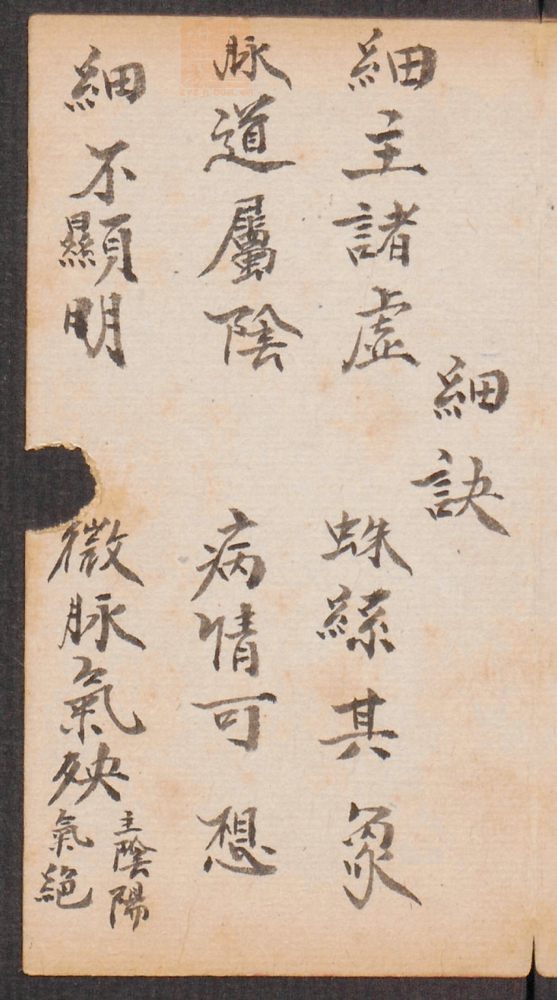 細訣
細主諸虛 蛛絲其象
脉道屬陰 病情可想
細不顯明 微脉氣殃
主陰陽
氣絕